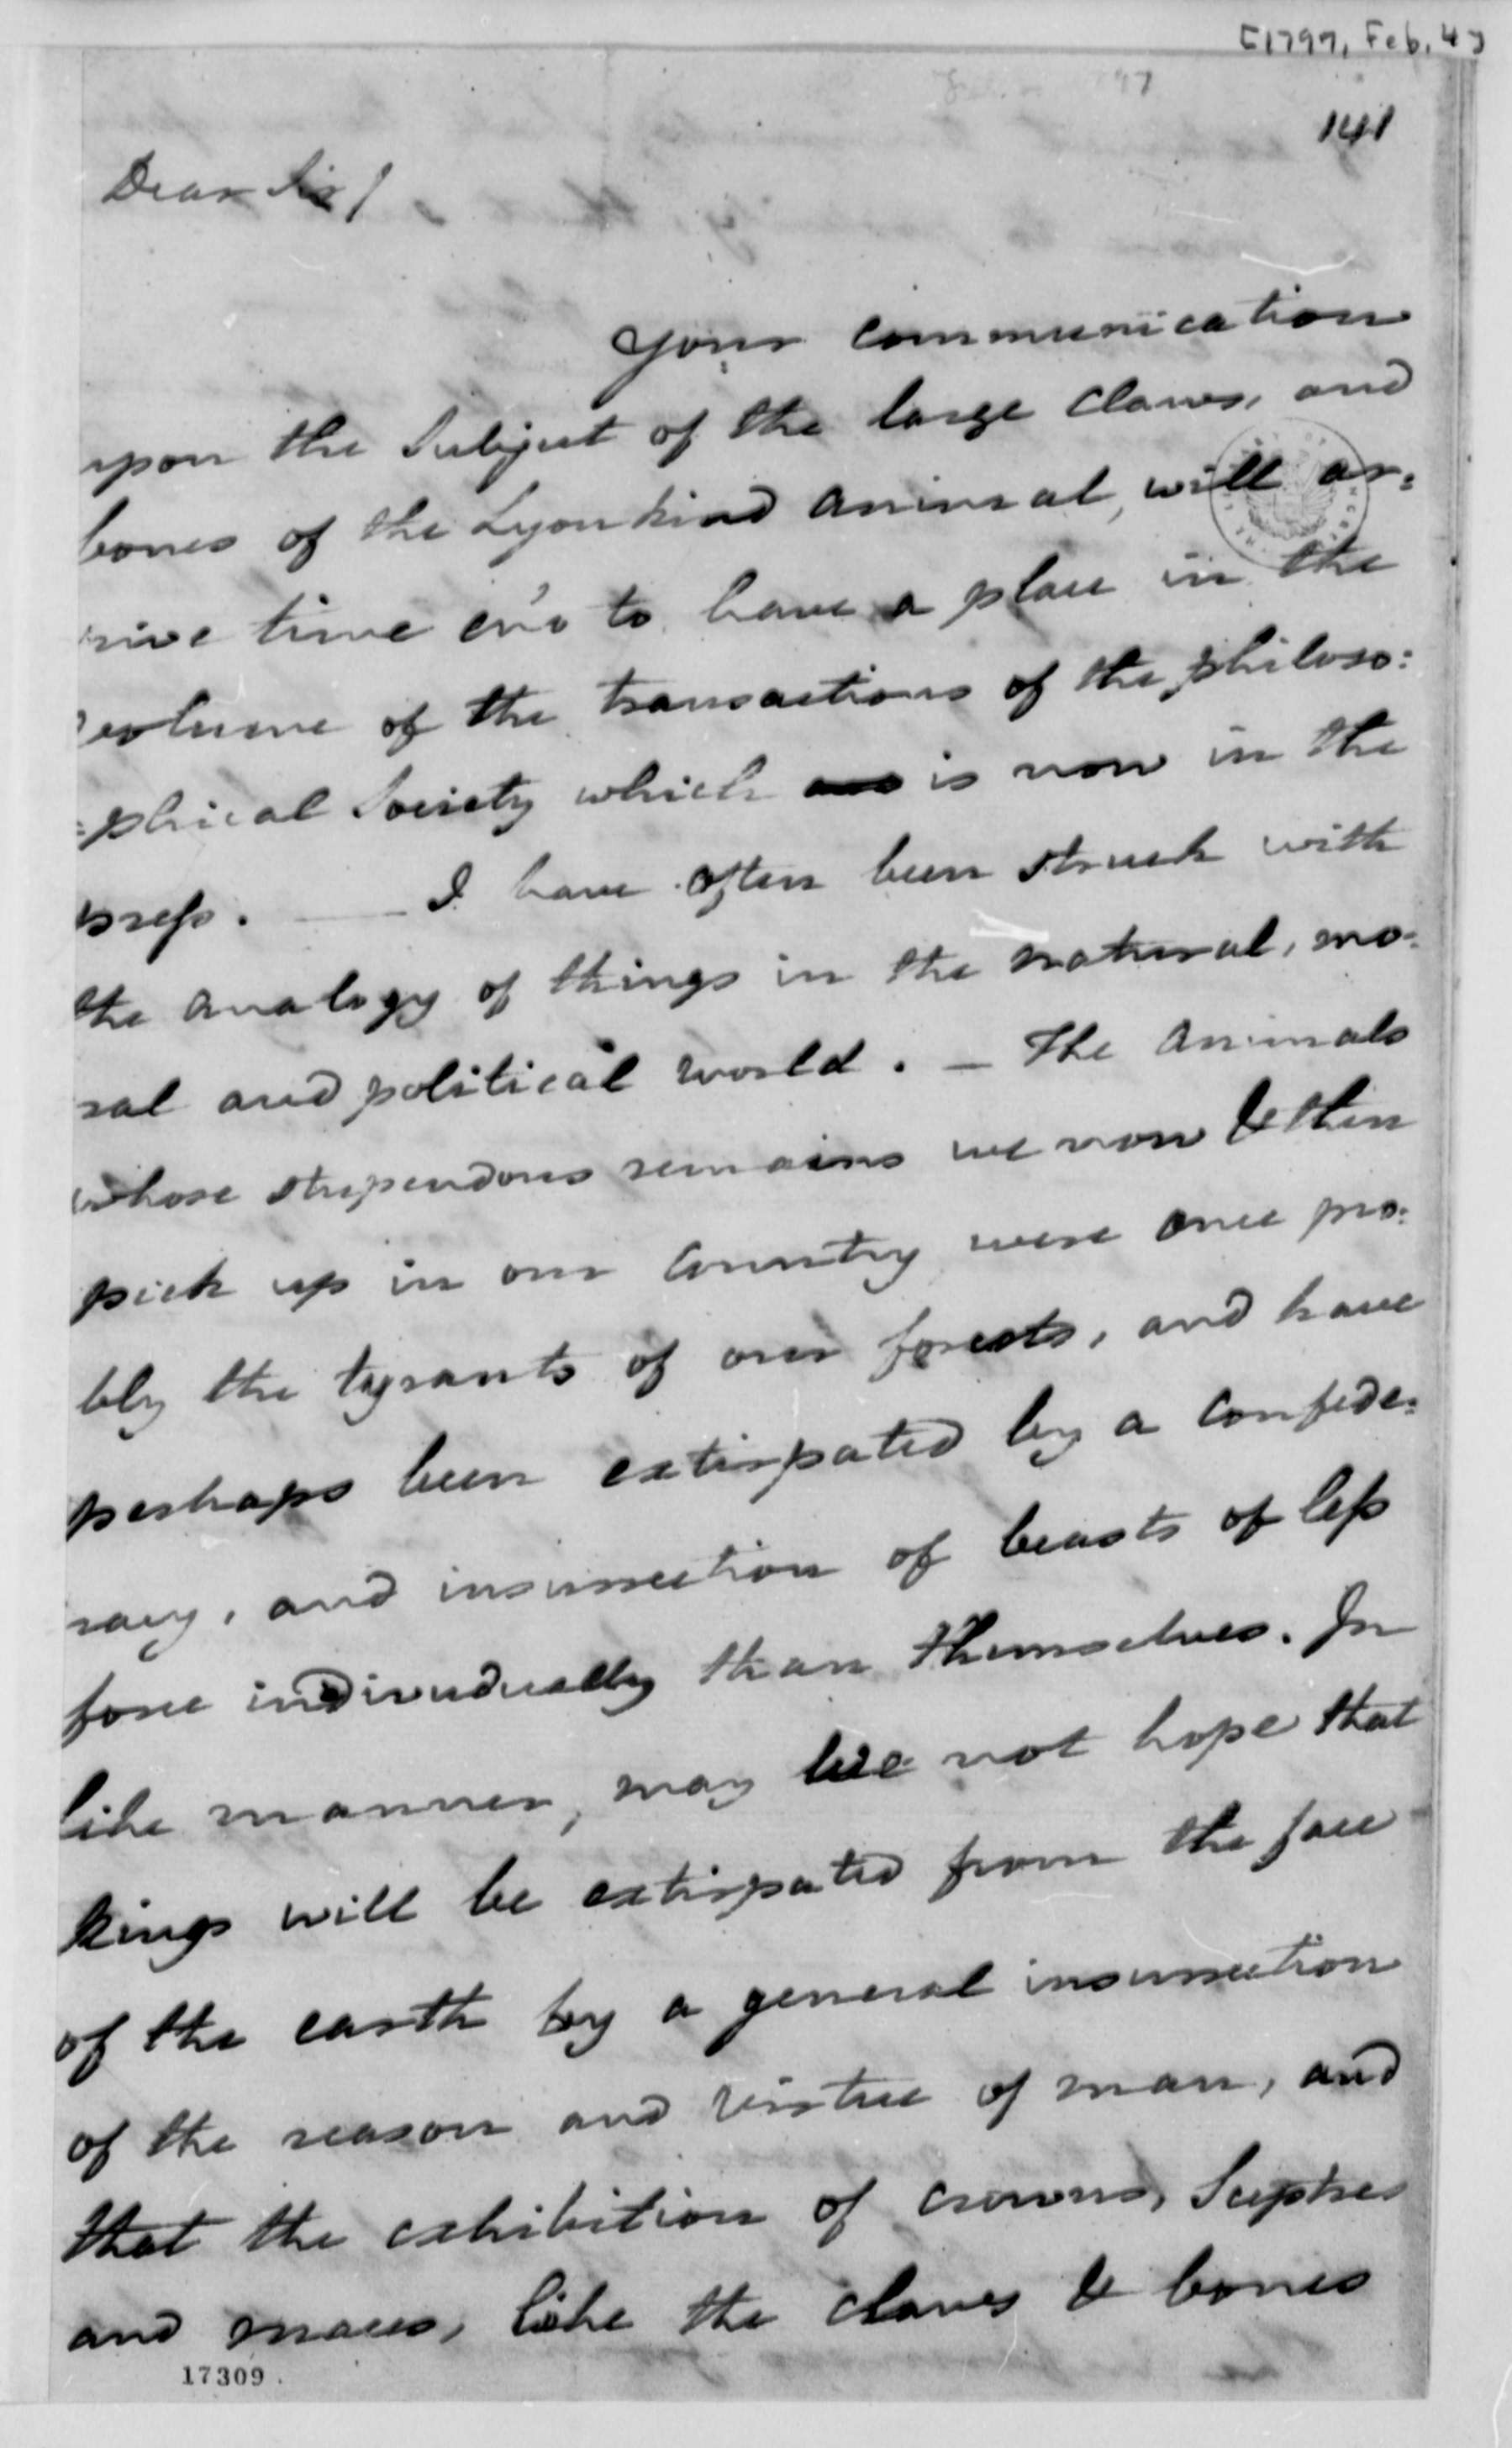 [1797, Feb. 4]
141
Dear Sir/
Your communication
upon the Subject of the large Claws, and
bones of the Lyon kind animal, will ar:
rive time eno' to have a place in the
volume of the transactions of the philoso:
:phical Society which is now in the
press. — I have often been struck with
the analogy of things in the natural, mo:
ral and political world. — The animals
whose stupendous remains we now & then
pick up in our Country were once pro:
bly the tyrants of our forests, and have
perhaps been extirpated by a confede:
racy, and insurrection of beasts of less
force individually than themselves. In
like manner, may we not hope that
kings will be extirpated from the face
of the earth by a general insurrection
of the reason and virtue of man, and
that the exhibition of crowns, Scepters
and maces, like the claws & bones
17309.